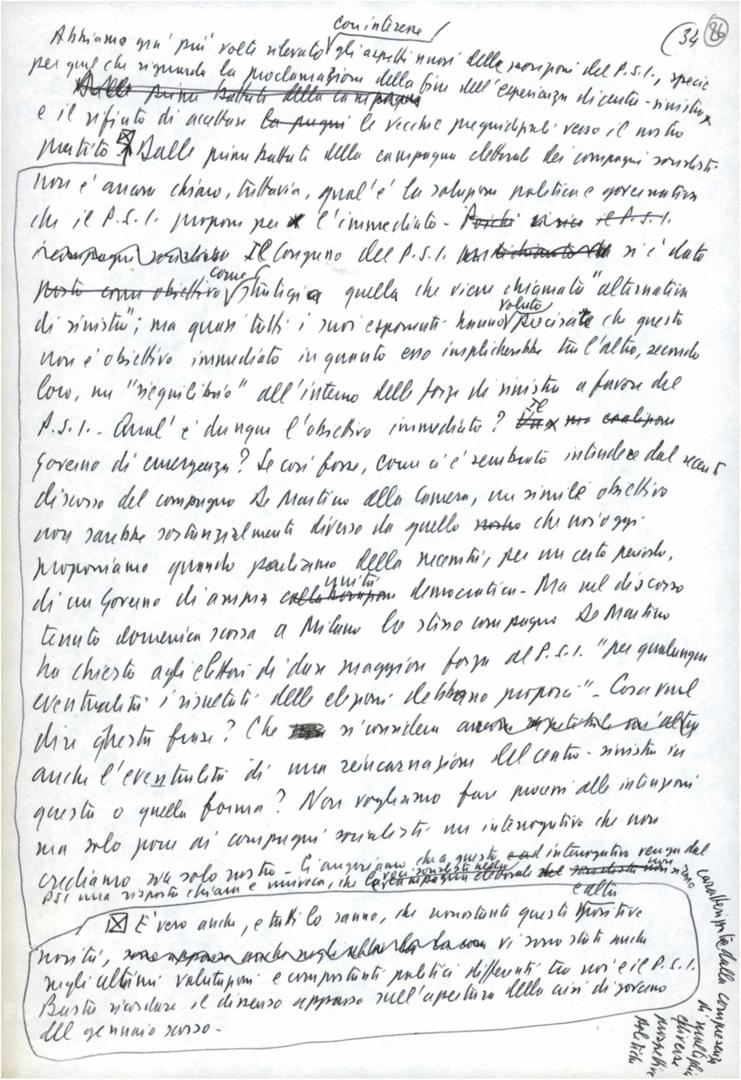 (34 86
con interesse
Abbiamo già più volte rilevato gli aspetti nuovi delle posizioni del P.S.I., specie
per quel che riguarda la proclamazione della fine dell'esperienza di centro-sinistra
Dalle prime battute della campagna
e il rifiuto di accettare le vecchie pregiudiziali verso il nostro
partito. Dalle prime battute della campagna elettorale dei compagni socialisti
non è ancora chiaro, tuttavia, qual'è la soluzione politica e governativa
che il P.S.I. propone per l'immediato - Poiché il P.S.I.
i compagni socialisti Il Congresso del P.S.I. ha dichiarato si è dato
come
posto come obiettivo strategia quella che viene chiamata "alternativa
voluto
di sinistra"; ma quasi tutti i suoi esponenti hanno precisare che questo
non è obiettivo immediato in quanto esso implicherebbe tra l'altro, secondo
loro, un "riequilibrio" all'interno delle forze di sinistra a favore del
P.S.I. - Qual'è dunque l'obiettivo immediato? Il una coalizione
Governo di emergenza? Se così fosse, come ci è sembrato intendere dal recente
discorso del compagno De Martino alla Camera, un simile obiettivo
non sarebbe sostanzialmente diverso da quello nostro che noi oggi
proponiamo quando parliamo della necessità, per un certo periodo,
unità
di un Governo di ampia collaborazione democratica - Ma nel discorso
tenuto domenica scorsa a Milano lo stesso compagno De Martino
ha chiesto agli elettori di dare maggiore forza al P.S.I. "per qualunque
eventualità i risultati delle elezioni debbano proporci" - Cosa vuol
dire questa frase? Che si considera
anche l'eventualità di una reincarnazione del centro-sinistra in
questa o quella forma? Non vogliamo fare processi alle intenzioni
ma solo porre ai compagni socialisti un interrogativo che non
crediamo sia solo nostro - Ci auguriamo che a questo interrogativo venga dal
PSI una risposta chiara e univoca, che le voci socialiste nella campagna elettorale non siano
caratterizzate dalla compresenza
di molteplici
diverse
prospettive
politiche
e altre
È vero anche, e tutti lo sanno, che nonostante queste positive
novità, vi sono stati anche
negli ultimi valutazioni e comportamenti politici differenti tra noi e il P.S.I.
Basta ricordare il dissenso apparso sull'apertura della crisi di governo
del gennaio scorso -